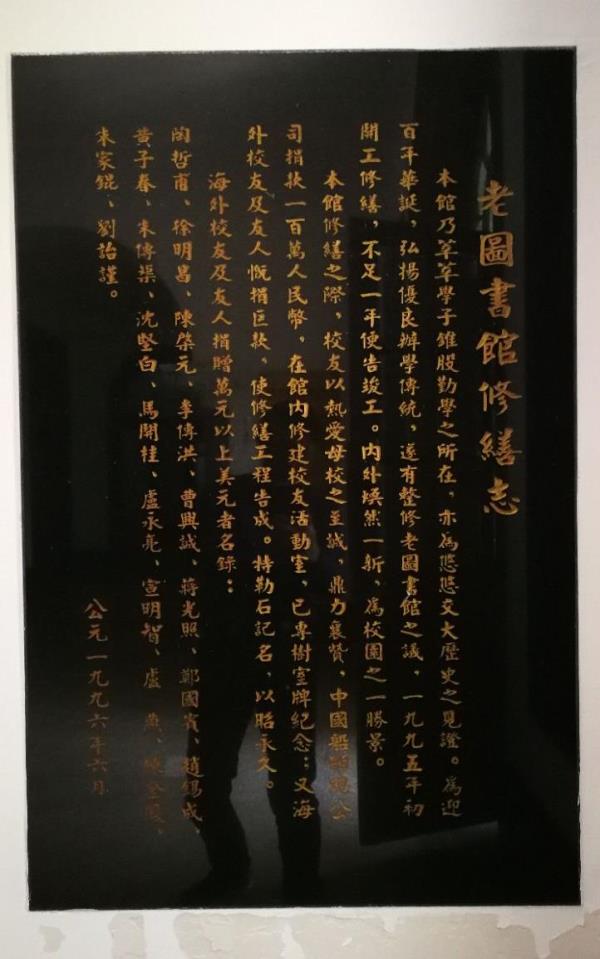 老圖書館修繕志
本館乃莘莘學子錐股勤學之所在，亦為悠悠交大歷史之見證。為迎
百年華誕，弘揚優良辦學傳統，遂有整修老圖書館之議，一九九五年初
開工修繕，不足一年便告竣工。內外煥然一新，為校園之一勝景。
本館修繕之際，校友以熱愛母校之至誠，鼎力襄贊，中國船舶總公
司捐款一百萬人民幣，在館內修建校友活動室，已專樹室牌紀念；又海
外校友及友人慨捐巨款，使修繕工程告成。特勒石記名，以昭永久。
海外校友及友人捐贈萬元以上美元者名錄：
陶哲甫、徐明昌、陳榮元、李傳洪、曹興誠、蔣光照、鄭國賓、趙錫成、
黃子春、朱傳榘、沈堅白、馬開桂、盧永亮、宣明智、盧燕、
朱家錕、劉詒謹。
公元一九九六年六月